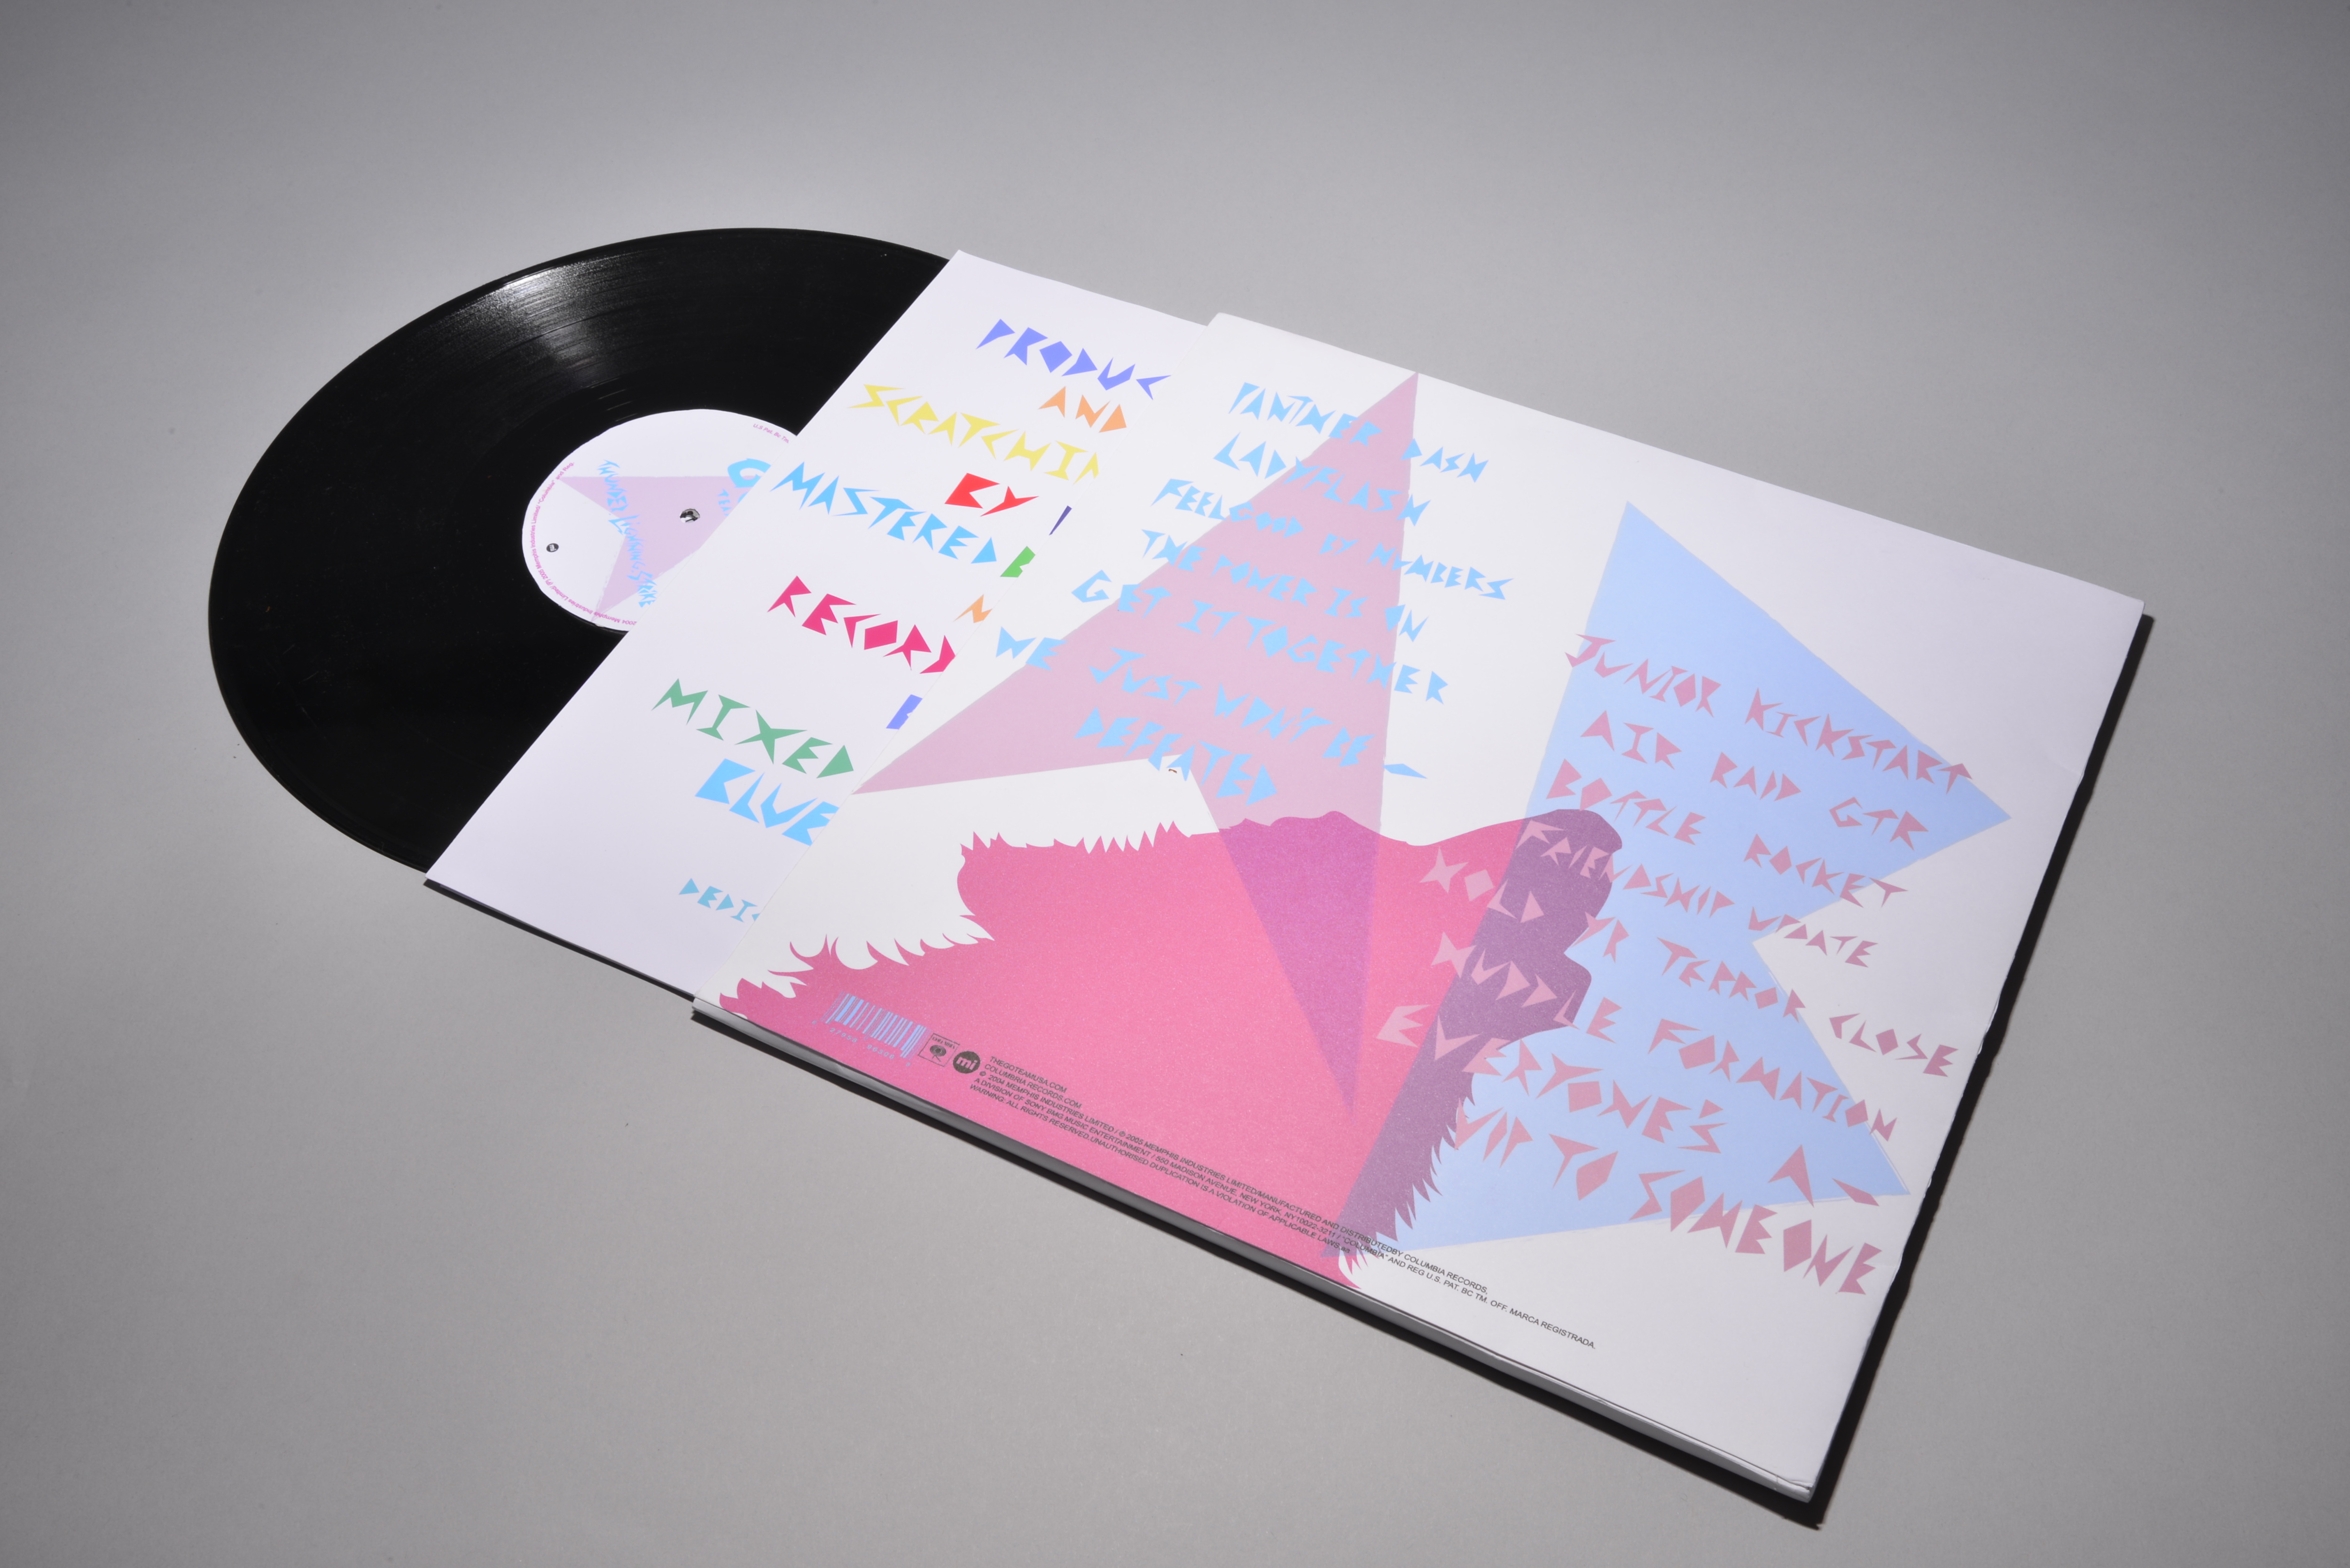 PRODUC
AND
SCRATCHIN
BY
MASTERED B
RECORD
MIXED
BLUE
DEDIC
THUNDER LIGHTNING STRIKE
PANTHER DASH
LADYFLASH
FEELGOOD BY NUMBERS
THE POWER IS ON
GET IT TOGETHER
WE JUST WON'T BE -
DEFEATED
JUNIOR KICKSTART
AIR RAID GTR
BOTTLE ROCKET
FRIENDSHIP UPDATE
HOLD YR TERROR CLOSE
HUDDLE FORMATION
EVERYONE'S A -
VIP TO SOMEONE
mi
THEGOTEAMUSA.COM
COLUMBIA RECORDS.COM
℗ 2004 MEMPHIS INDUSTRIES LIMITED / © 2005 MEMPHIS INDUSTRIES LIMITED/MANUFACTURED AND DISTRIBUTEDBY COLUMBIA RECORDS,
A DIVISION OF SONY BMG MUSIC ENTERTAINMENT / 550 MADISON AVENUE, NEW YORK, NY10022-3211 / "COLUMBIA" AND REG U.S. PAT. BC TM. OFF. MARCA REGISTRADA.
WARNING: ALL RIGHTS RESERVED.UNAUTHORISED DUPLICATION IS A VIOLATION OF APPLICABLE LAWS